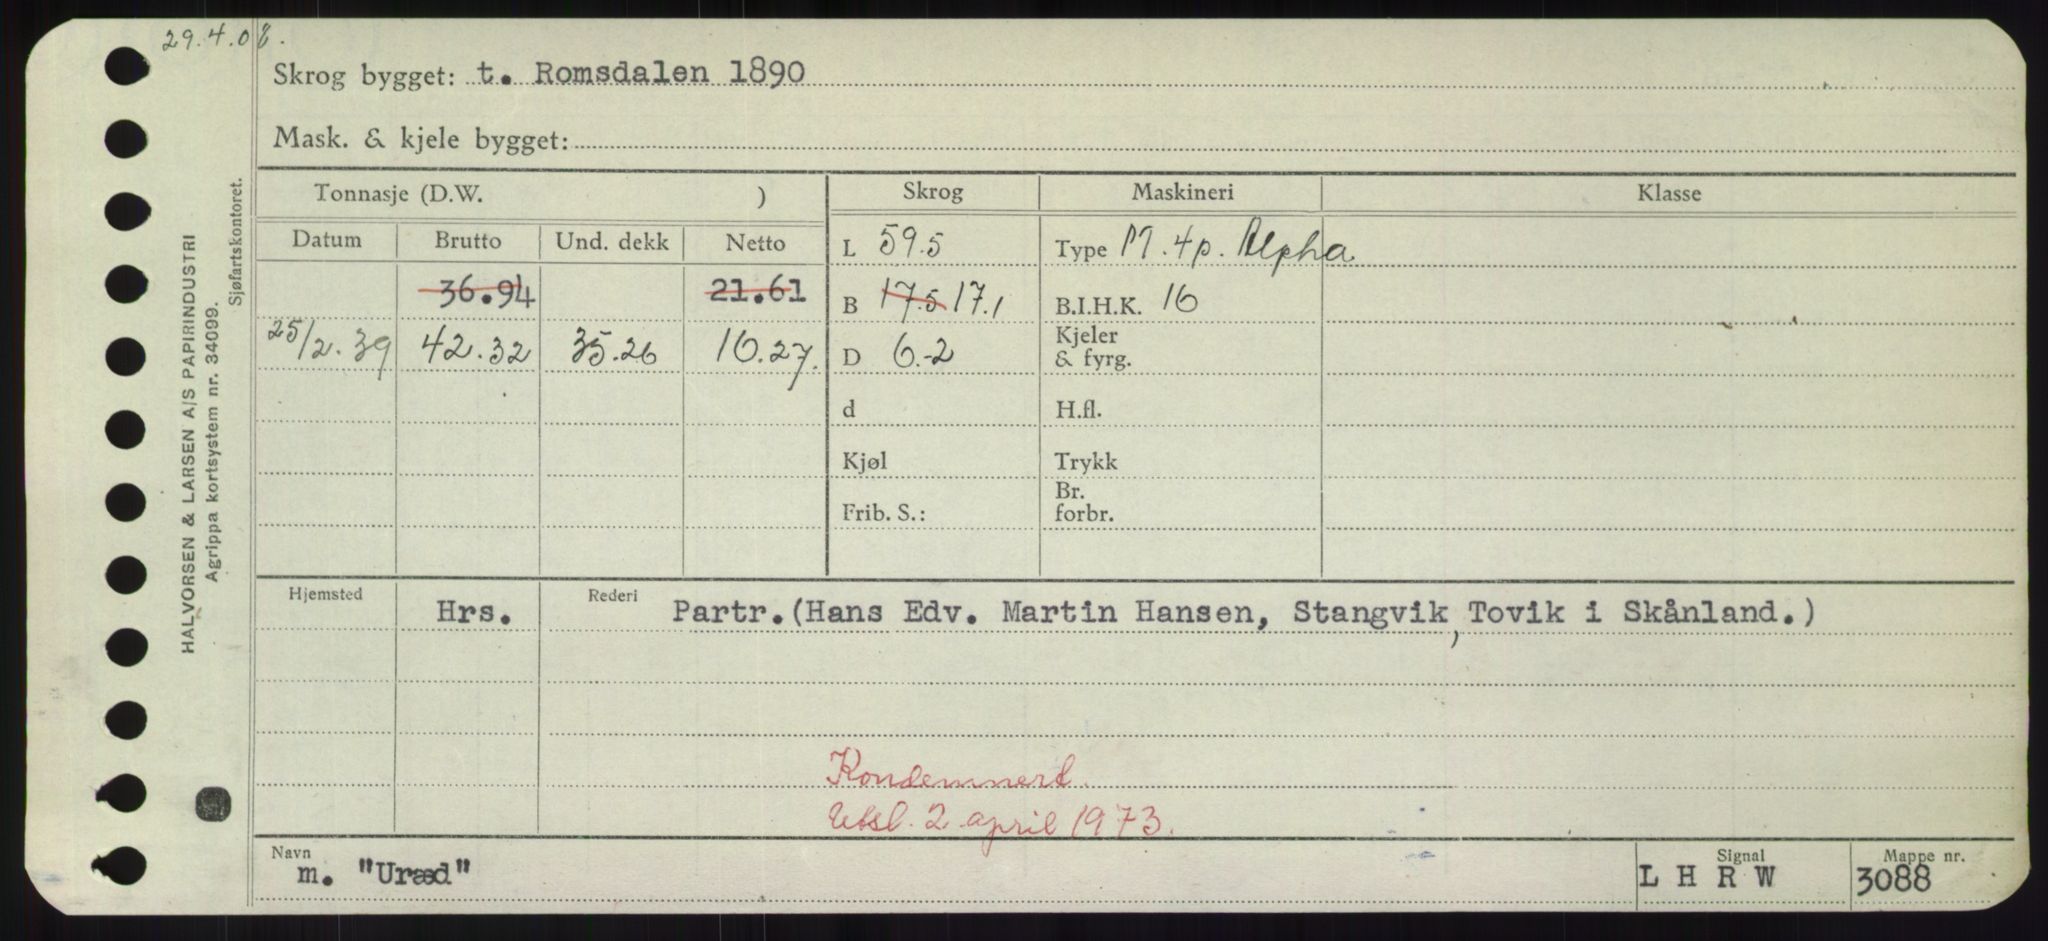 29.4.08.
Skrog bygget: t. Romsdalen 1890
Mask. & kjele bygget:
HALVORSEN & LARSEN A/S PAPIRINDUSTRI
Agrippa kortsystem nr. 34099.
Sjøfartskontoret.
Tonnasje (D.W. ) Skrog Maskineri Klasse
Datum Brutto Und. dekk Netto L 59.5 Type M.4p. Alpha
36.94 21.61 B 17.5 17.1 B.I.H.K. 16
25/2.39 42.32 35.26 16.27. D 6.2 Kjeler & fyrg.
d H.fl.
Kjøl Trykk
Frib. S.: Br. forbr.
Hjemsted Hrs. Rederi Partr.(Hans Edv. Martin Hansen, Stangvik, Tovik i Skånland.)
Kondemnert.
Utsl. 2 april 1973.
Navn Signal Mappe nr.
m. "Uræd" L H R W 3088